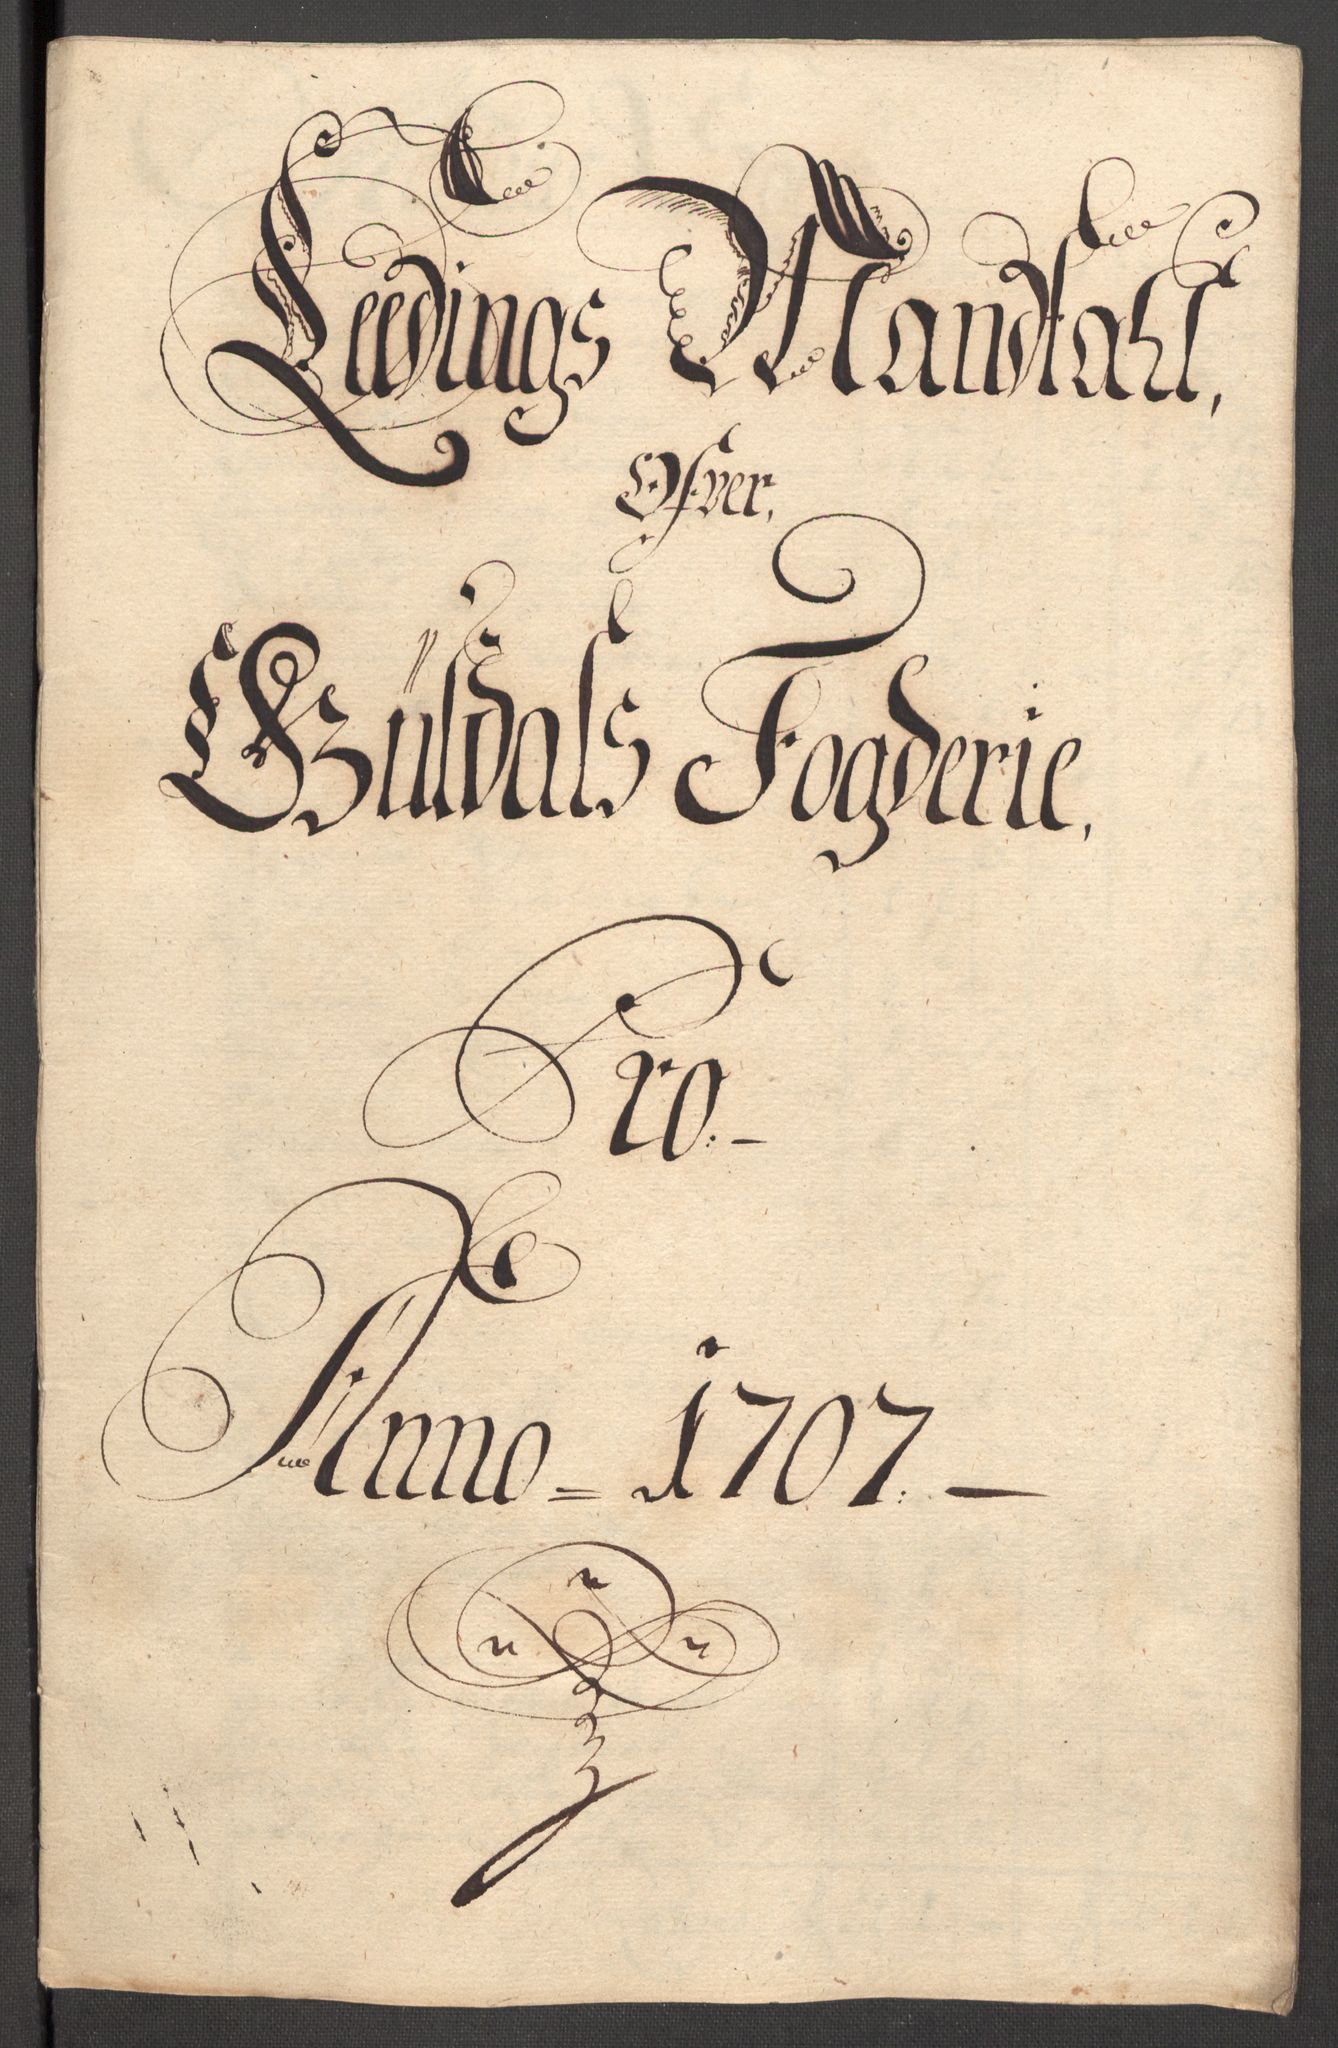 Leedings Mandtahl,
Ofver,
Guldals Fogderie,
Pro.–
Anno = 1707. —